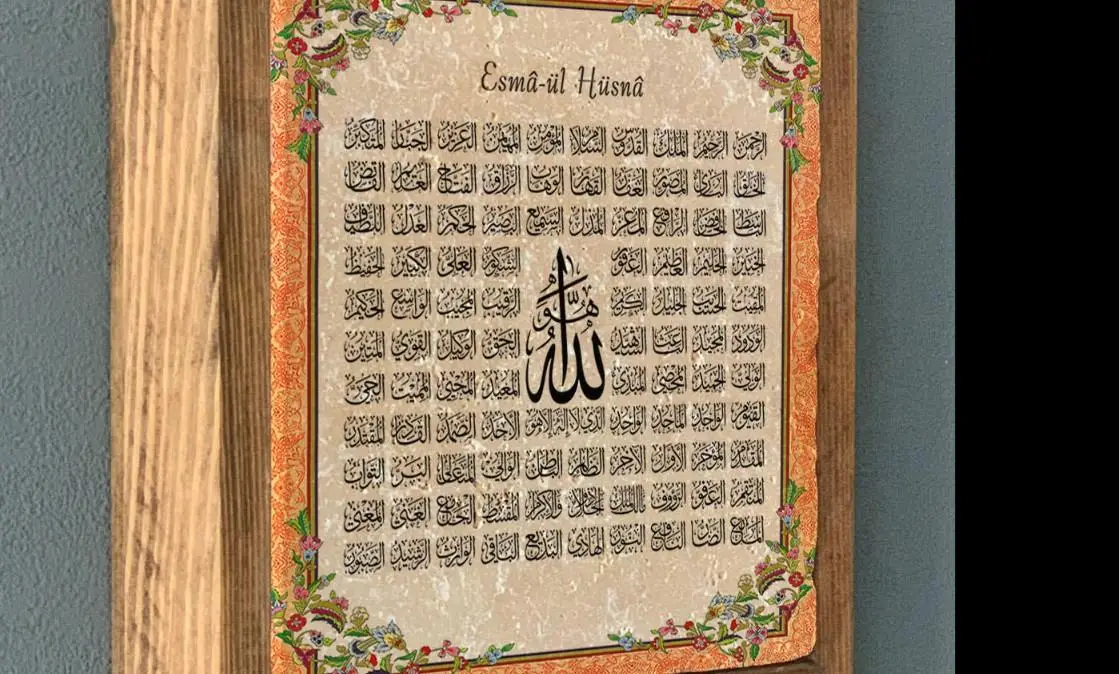 Esmâ-ül Hüsnâ
الرحمن الرحيم الملك القدوس السلام المؤمن المهيمن العزيز الجبار المتكبر
الخالق البارئ المصور الغفار القهار الوهاب الرزاق الفتاح العليم القابض
الباسط الخافض الرافع المعز المذل السميع البصير الحكم العدل اللطيف
الخبير الحليم العظيم الغفور الشكور العلي الكبير الحفيظ
المقيت الحسيب الجليل الكريم الرقيب المجيب الواسع الحكيم
هو الله
الودود المجيد الباعث الشهيد الحق الوكيل القوي المتين
الولي الحميد المحصي المبدئ المعيد المحيي المميت الحي
القيوم الواجد الماجد الواحد الذي لا إله إلا هو الأحد الصمد القادر المقتدر
المقدم المؤخر الأول الآخر الظاهر الباطن الوالي المتعالي البر التواب
المنتقم العفو الرؤوف مالك الملك ذو الجلال والإكرام المقسط الجامع الغني المغني
المانع الضار النافع النور الهادي البديع الباقي الوارث الرشيد الصبور